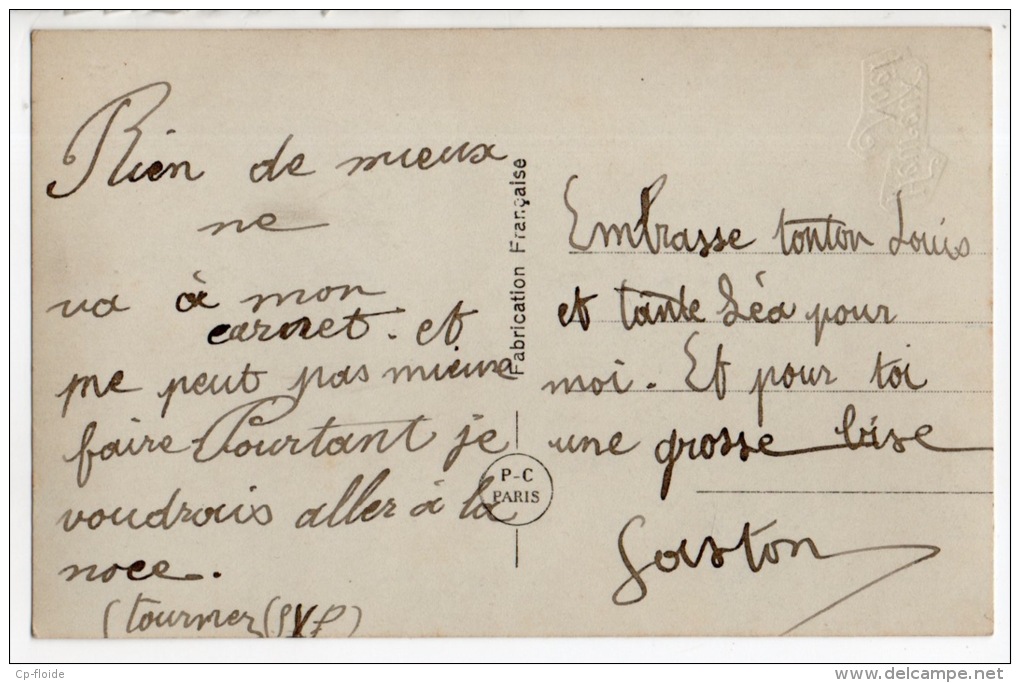 Rien de mieux
ne
va à mon
carnet. et
ne peut pas mieux
faire Pourtant je
voudrais aller à la
noce.
(tournez (SVP)
Fabrication Française
P-C
PARIS
Embrasse tonton Louis
et tante Léa pour
moi. Et pour toi
une grosse bise
Gaston
Cp-floide
www.delcampe.net